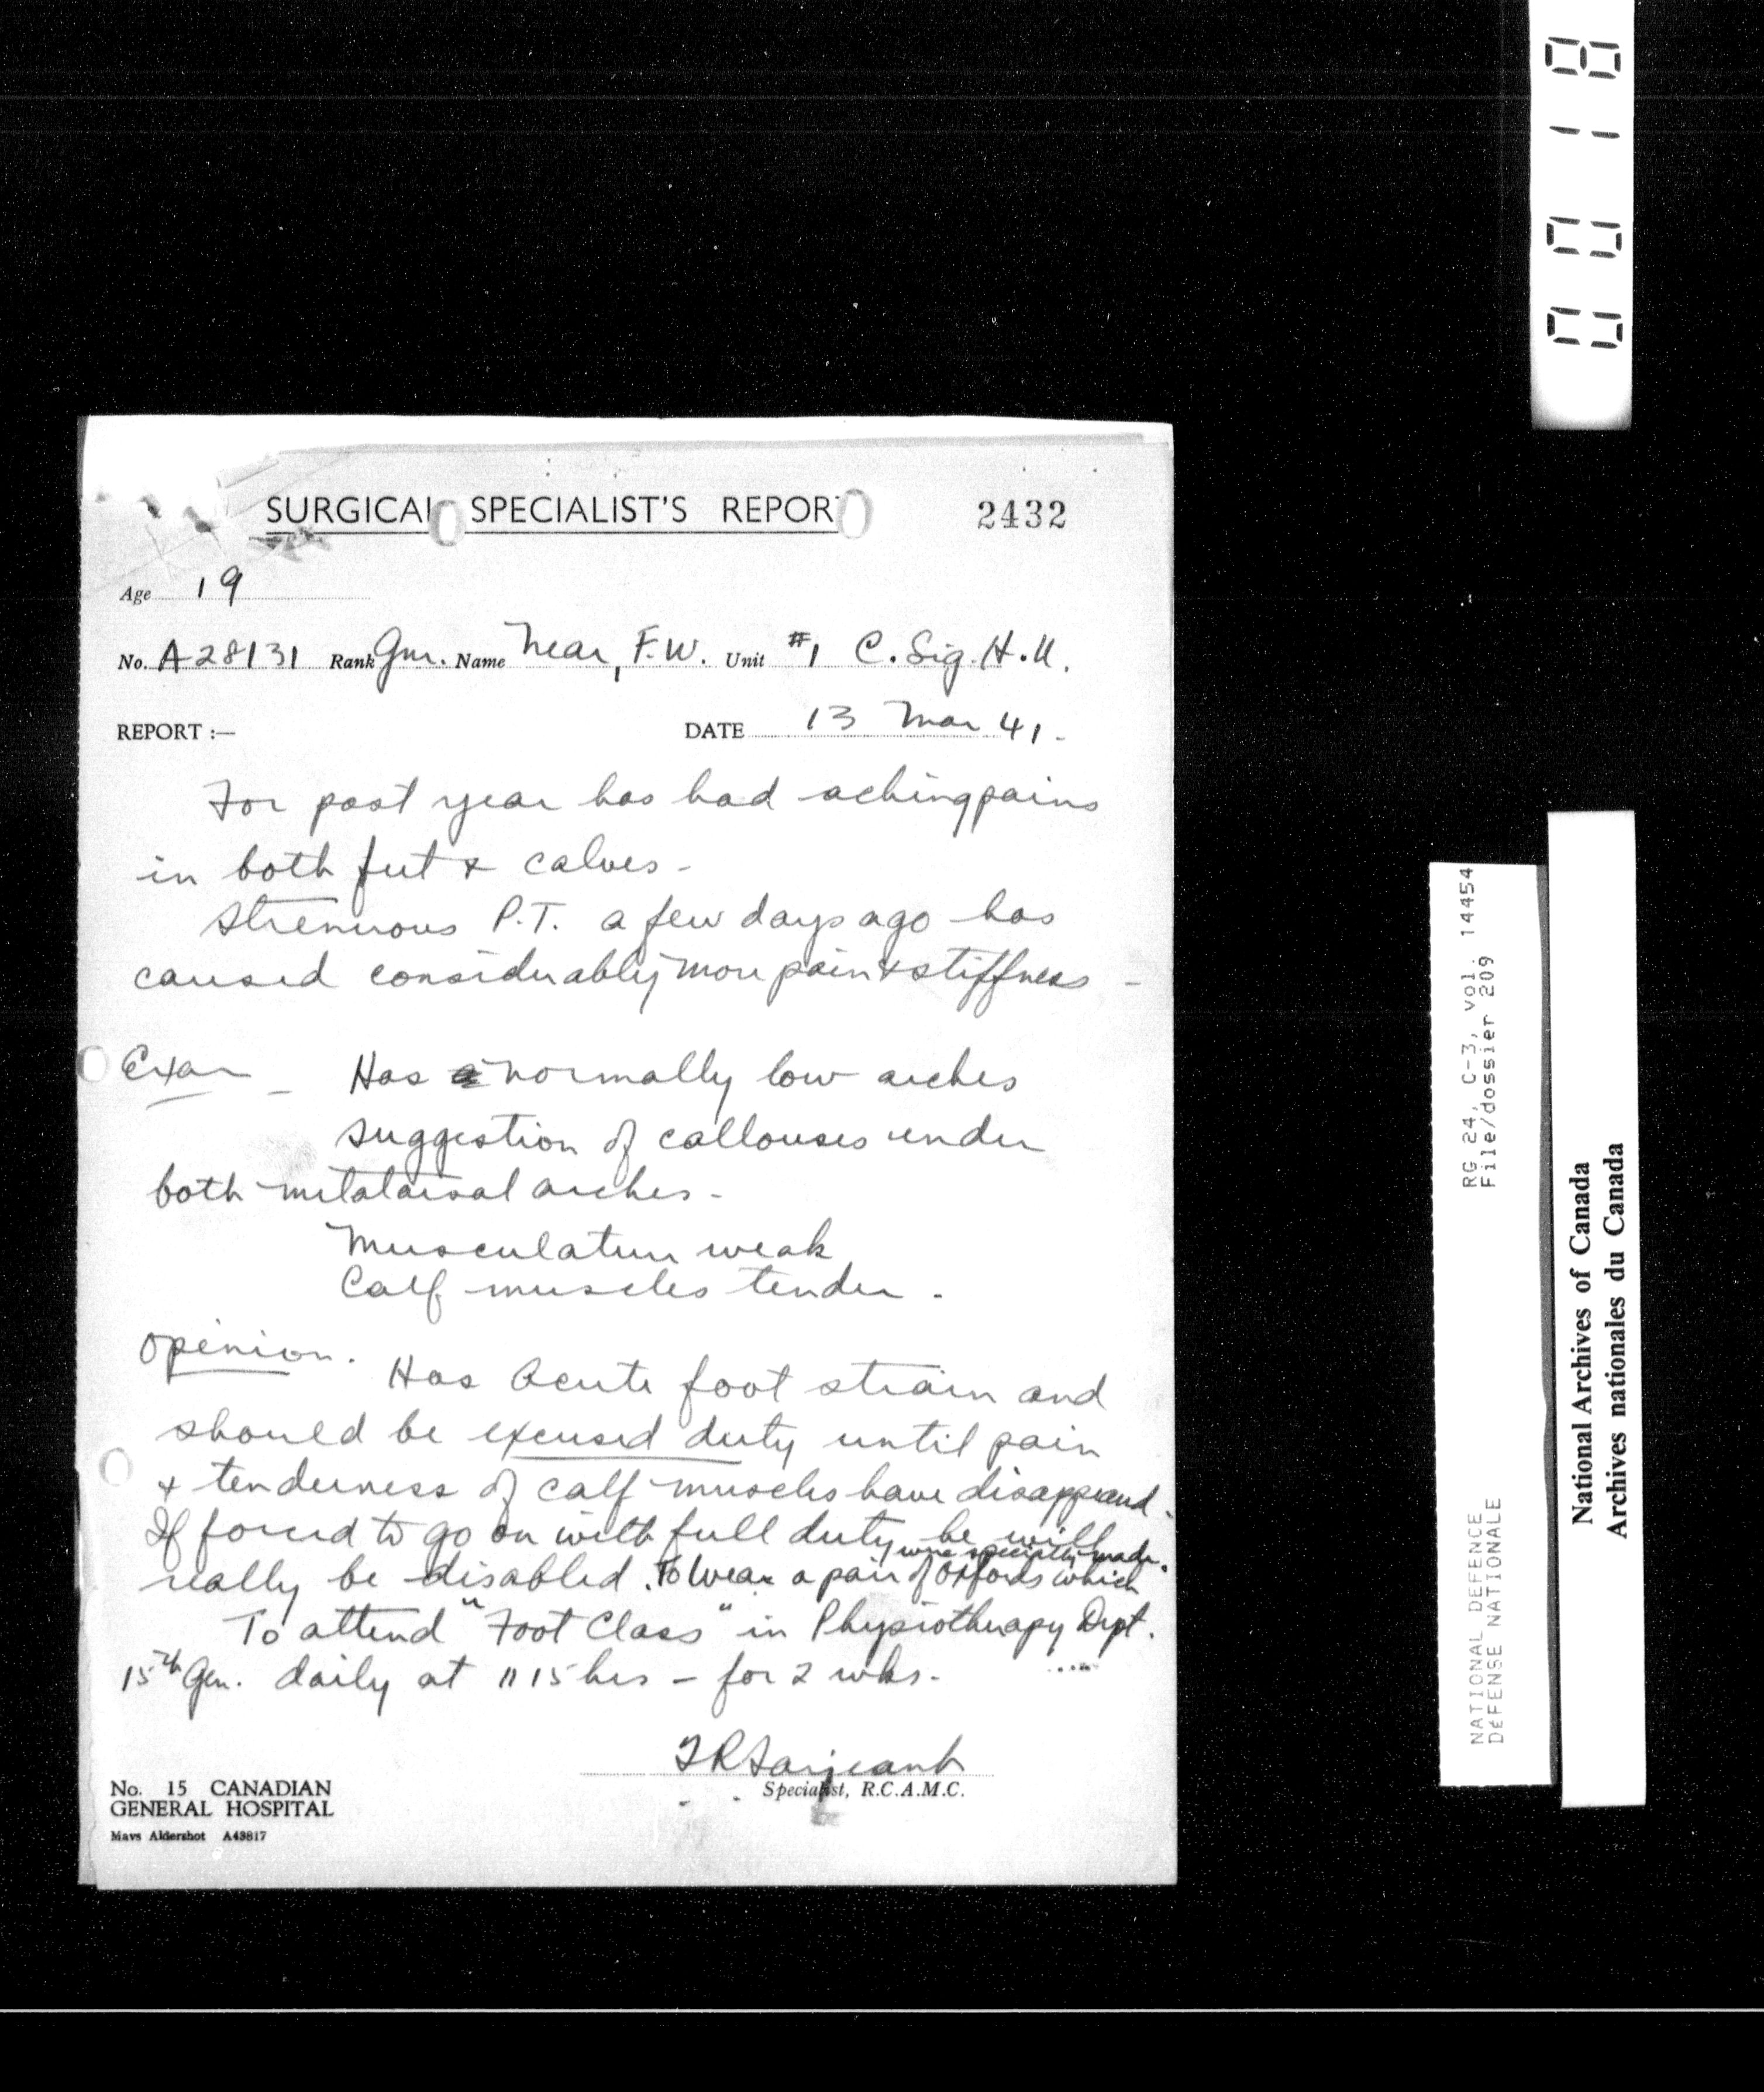 0018
SURGICAL SPECIALIST'S REPORT 2432
Age 19
No. A28131 Rank Gnr. Name Near, F.W. Unit #1 C. Sig. H.U.
REPORT :— DATE 13 Mar 41.
For past year has had aching pains
in both feet & calves -
Strenuous P.T. a few days ago has
caused considerably more pain & stiffness -
Exam - Has normally low arches
suggestion of callouses under
both metatarsal arches -
Musculature weak
Calf muscles tender.
Opinion. Has acute foot strain and
should be excused duty until pain
& tenderness of calf muscles have disappeared.
If forced to go on with full duty he will
really be disabled. To wear a pair of oxfords which
were specially made.
To attend "Foot Class" in Physiotherapy Dept.
15th Gen. daily at 1115 hrs - for 2 wks.
Specialist, R.C.A.M.C.
No. 15 CANADIAN
GENERAL HOSPITAL
Mavs Aldershot A43817
RG 24, C-3, vol. 14454
File/dossier 209
NATIONAL DEFENCE
DéFENSE NATIONALE
National Archives of Canada
Archives nationales du Canada